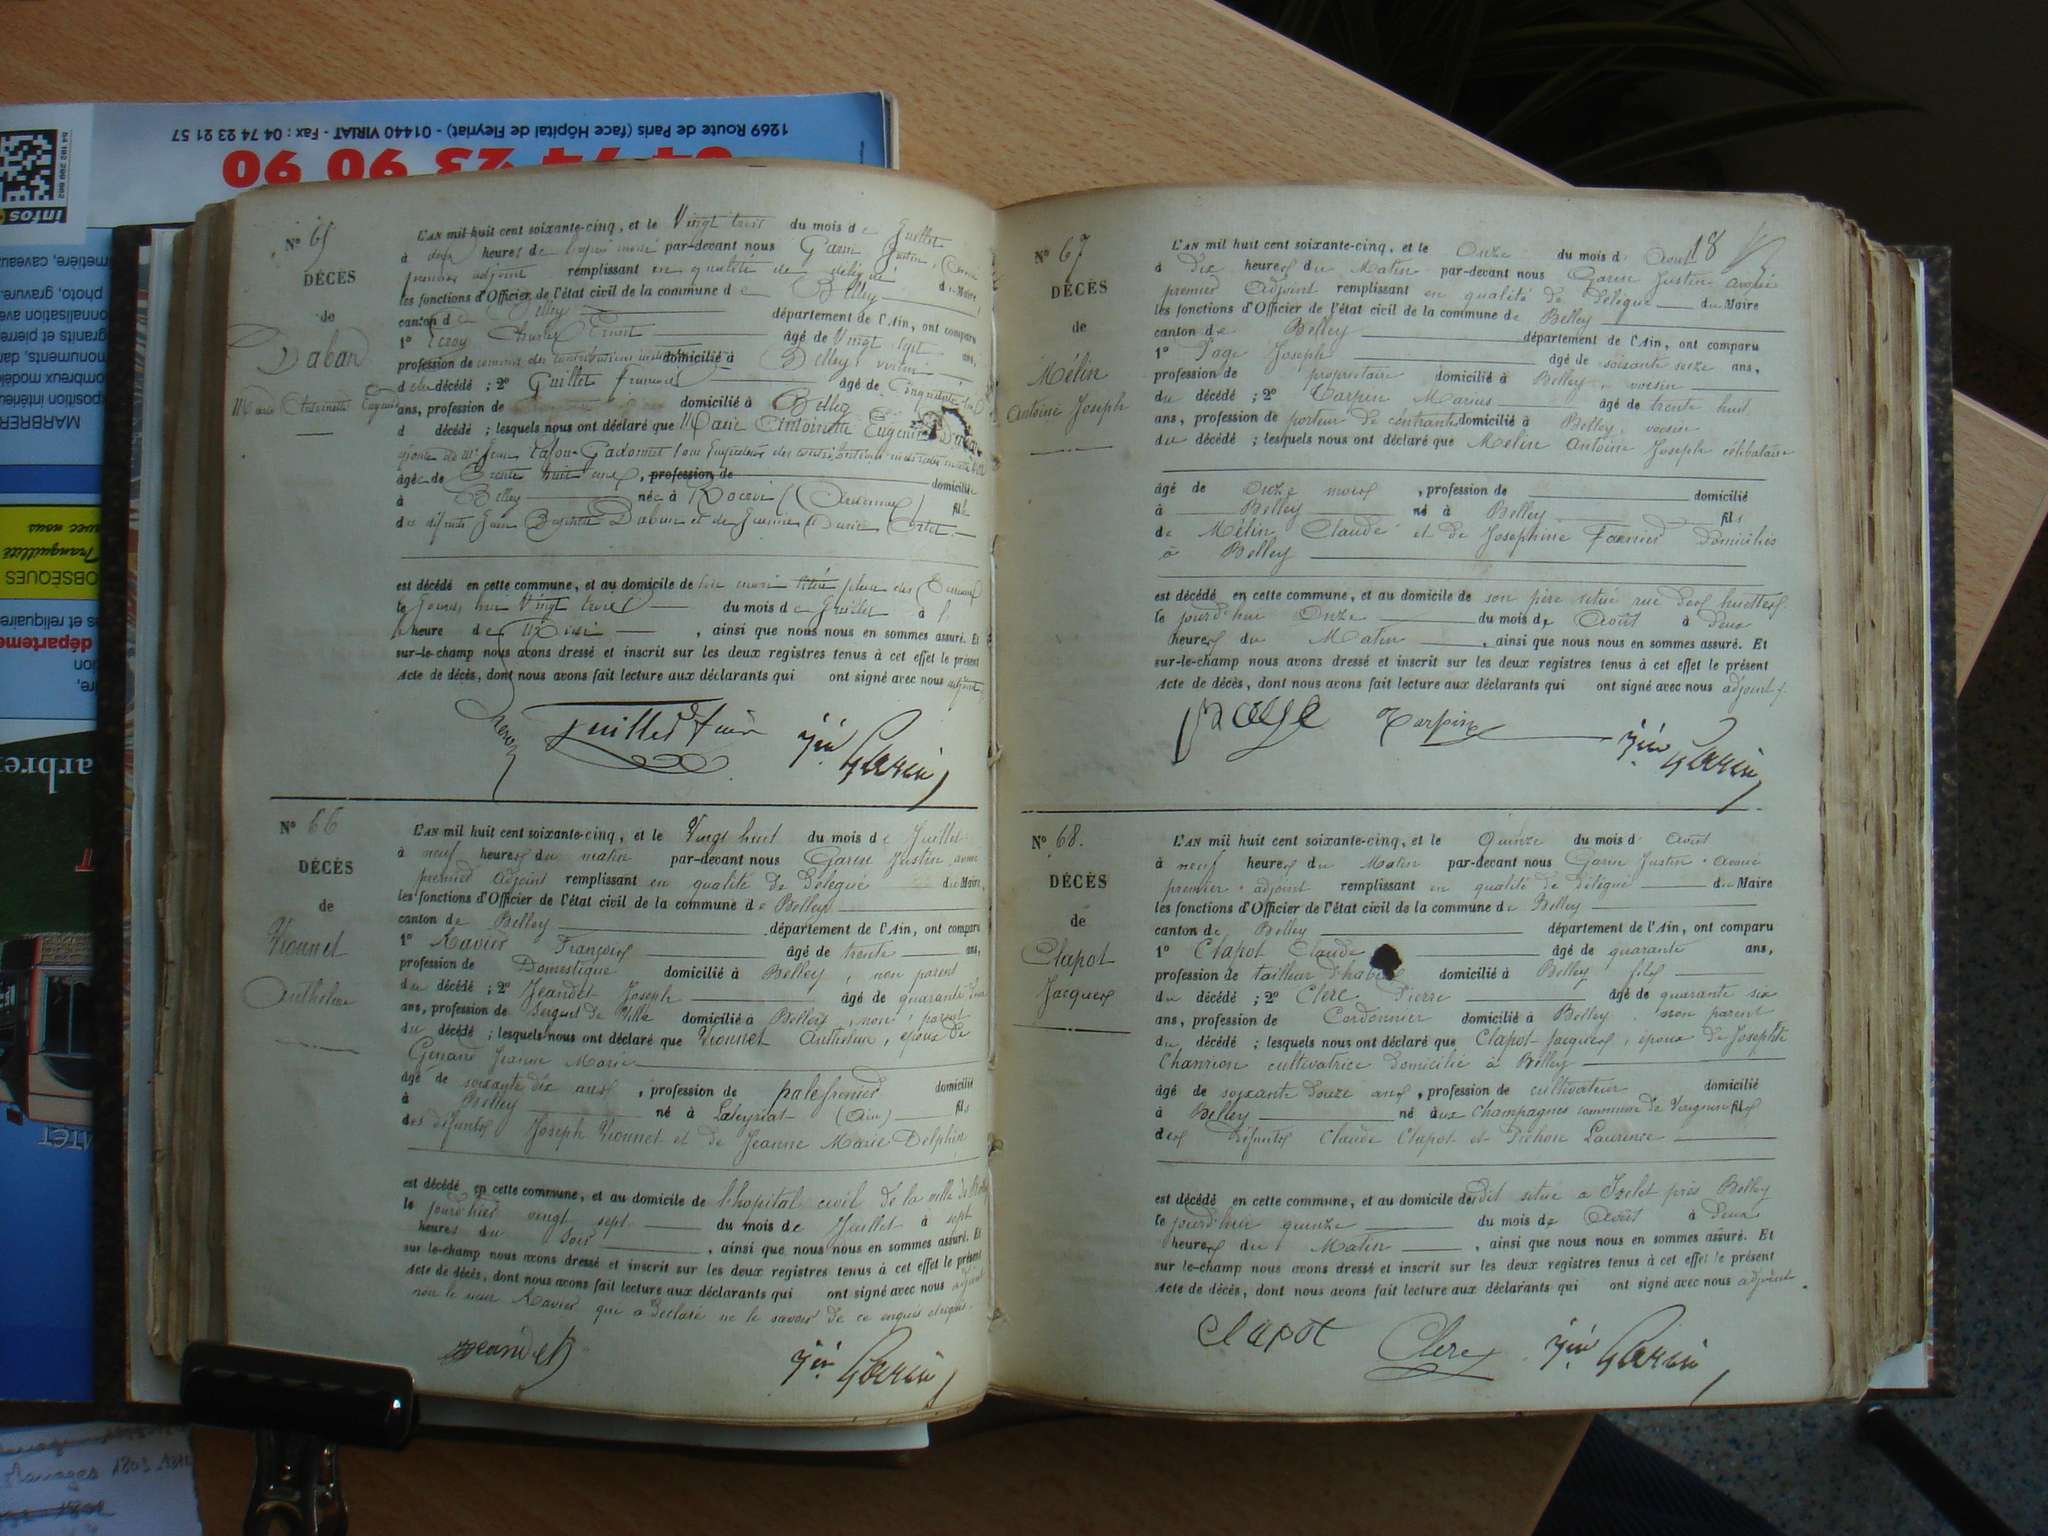 1269 Route de Paris (face Hôpital de Fleyriat) - 01440 VIRIAT - Fax : 04 74 23 21 57
04 74 23 90 90
infos
N° 65
DÉCÈS
de
Daban
Marie Antoinette Eugénie
L'AN mil huit cent soixante-cinq, et le Vingt trois du mois de Juillet
à deux heures de par-devant nous Garin Justin,
premier adjoint remplissant en qualité de délégué du Maire
les fonctions d'Officier de l'état civil de la commune de Belley
canton de Belley département de l'Ain, ont comparu
1° Leroy Charles Ernest âgé de Vingt sept ans,
profession de commis des contributions domicilié à Belley, voisin
de la décédé ; 2° Guillet François âgé de Cinquante
ans, profession de domicilié à Belley
d décédé ; lesquels nous ont déclaré que Marie Antoinette Eugénie Daban
épouse de Mr Jean des contributions indirectes
âgée de Trente huit ans, profession de domiciliée
à Belley née à Rocroi (Ardennes) fille
des défunts Jean Baptiste Daban et de Jeanne Marie
est décédé en cette commune, et au domicile de son mari situé place des
le jourd'hui Vingt trois du mois de Juillet à
heure de , ainsi que nous nous en sommes assuré. Et
sur-le-champ nous avons dressé et inscrit sur les deux registres tenus à cet effet le présent
Acte de décès, dont nous avons fait lecture aux déclarants qui ont signé avec nous adjoint
Leroy Guillet Jin Garin
N° 66
DÉCÈS
de
Vionnet
Anthelme
L'AN mil huit cent soixante-cinq, et le Vingt huit du mois de Juillet
à neuf heures du matin par-devant nous Garin Justin, avoué
premier adjoint remplissant en qualité de Délégué du Maire,
les fonctions d'Officier de l'état civil de la commune de Belley
canton de Belley département de l'Ain, ont comparu
1° Ravier François âgé de trente ans,
profession de Domestique domicilié à Belley, non parent
du décédé ; 2° Jeandet Joseph âgé de quarante
ans, profession de Sergent de Ville domicilié à Belley, non parent
du décédé ; lesquels nous ont déclaré que Vionnet Anthelme, époux de
Genand Jeanne Marie
âgé de soixante dix ans, profession de palefrenier domicilié
à Belley né à Laleyriat (Ain) fils
des défunts Joseph Vionnet et de Jeanne Marie Delphin
est décédé en cette commune, et au domicile de l'hopital civil de la ville de Belley
le jourd'hier vingt sept du mois de Juillet à sept
heures du soir , ainsi que nous nous en sommes assuré. Et
sur le-champ nous avons dressé et inscrit sur les deux registres tenus à cet effet le présent
Acte de décès, dont nous avons fait lecture aux déclarants qui ont signé avec nous adjoint
non le sieur Ravier qui a déclaré ne le savoir de ce enquis et requis.
Jeandet Jin Garin
18
N° 67
DÉCÈS
de
Mélin
Antoine Joseph
L'AN mil huit cent soixante-cinq, et le Onze du mois d' Aout
à Dix heures du Matin par-devant nous Garin Justin avoué
premier Adjoint remplissant en qualité de Délégué du Maire
les fonctions d'Officier de l'état civil de la commune de Belley
canton de Belley département de l'Ain, ont comparu
1° Page Joseph âgé de soixante seize ans,
profession de propriétaire domicilié à Belley, voisin
du décédé ; 2° Tarpin Marius âgé de trente huit
ans, profession de porteur de contraintes domicilié à Belley, voisin
du décédé ; lesquels nous ont déclaré que Mélin Antoine Joseph célibataire
âgé de Onze mois , profession de domicilié
à Belley né à Belley fils
de Mélin Claude et de Josephine Domiciliés
à Belley
est décédé en cette commune, et au domicile de son père situé rue des huettes
le jourd'hui Onze du mois de Août à Deux
heures du Matin , ainsi que nous nous en sommes assuré. Et
sur-le-champ nous avons dressé et inscrit sur les deux registres tenus à cet effet le présent
Acte de décès, dont nous avons fait lecture aux déclarants qui ont signé avec nous adjoint
page Tarpin Jin Garin
N° 68.
DÉCÈS
de
Clapot
Jacques
L'AN mil huit cent soixante-cinq, et le Quinze du mois d' Aout
à neuf heures du Matin par-devant nous Garin Justin avoué
premier adjoint remplissant en qualité de Délégué du Maire
les fonctions d'Officier de l'état civil de la commune de Belley
canton de Belley département de l'Ain, ont comparu
1° Clapot Claude âgé de quarante ans,
profession de tailleur d'habits domicilié à Belley fils
du décédé ; 2° Clerc Pierre âgé de quarante six
ans, profession de Cordonnier domicilié à Belley non parent
du décédé ; lesquels nous ont déclaré que Clapot Jacques, époux de Josephte
Chanrion cultivatrice Domicilié à Belley
âgé de soixante Douze ans, profession de cultivateur domicilié
à Belley né aux Champagnes commune de fils
des Défunts Claude Clapot et Pichon Laurence
est décédé en cette commune, et au domicile de dit situé à près Belley
le jourd'hui quinze du mois de Août à Deux
heures du Matin , ainsi que nous nous en sommes assuré. Et
sur le-champ nous avons dressé et inscrit sur les deux registres tenus à cet effet le présent
Acte de décès, dont nous avons fait lecture aux déclarants qui ont signé avec nous adjoint.
Clapot Clerc Jin Garin